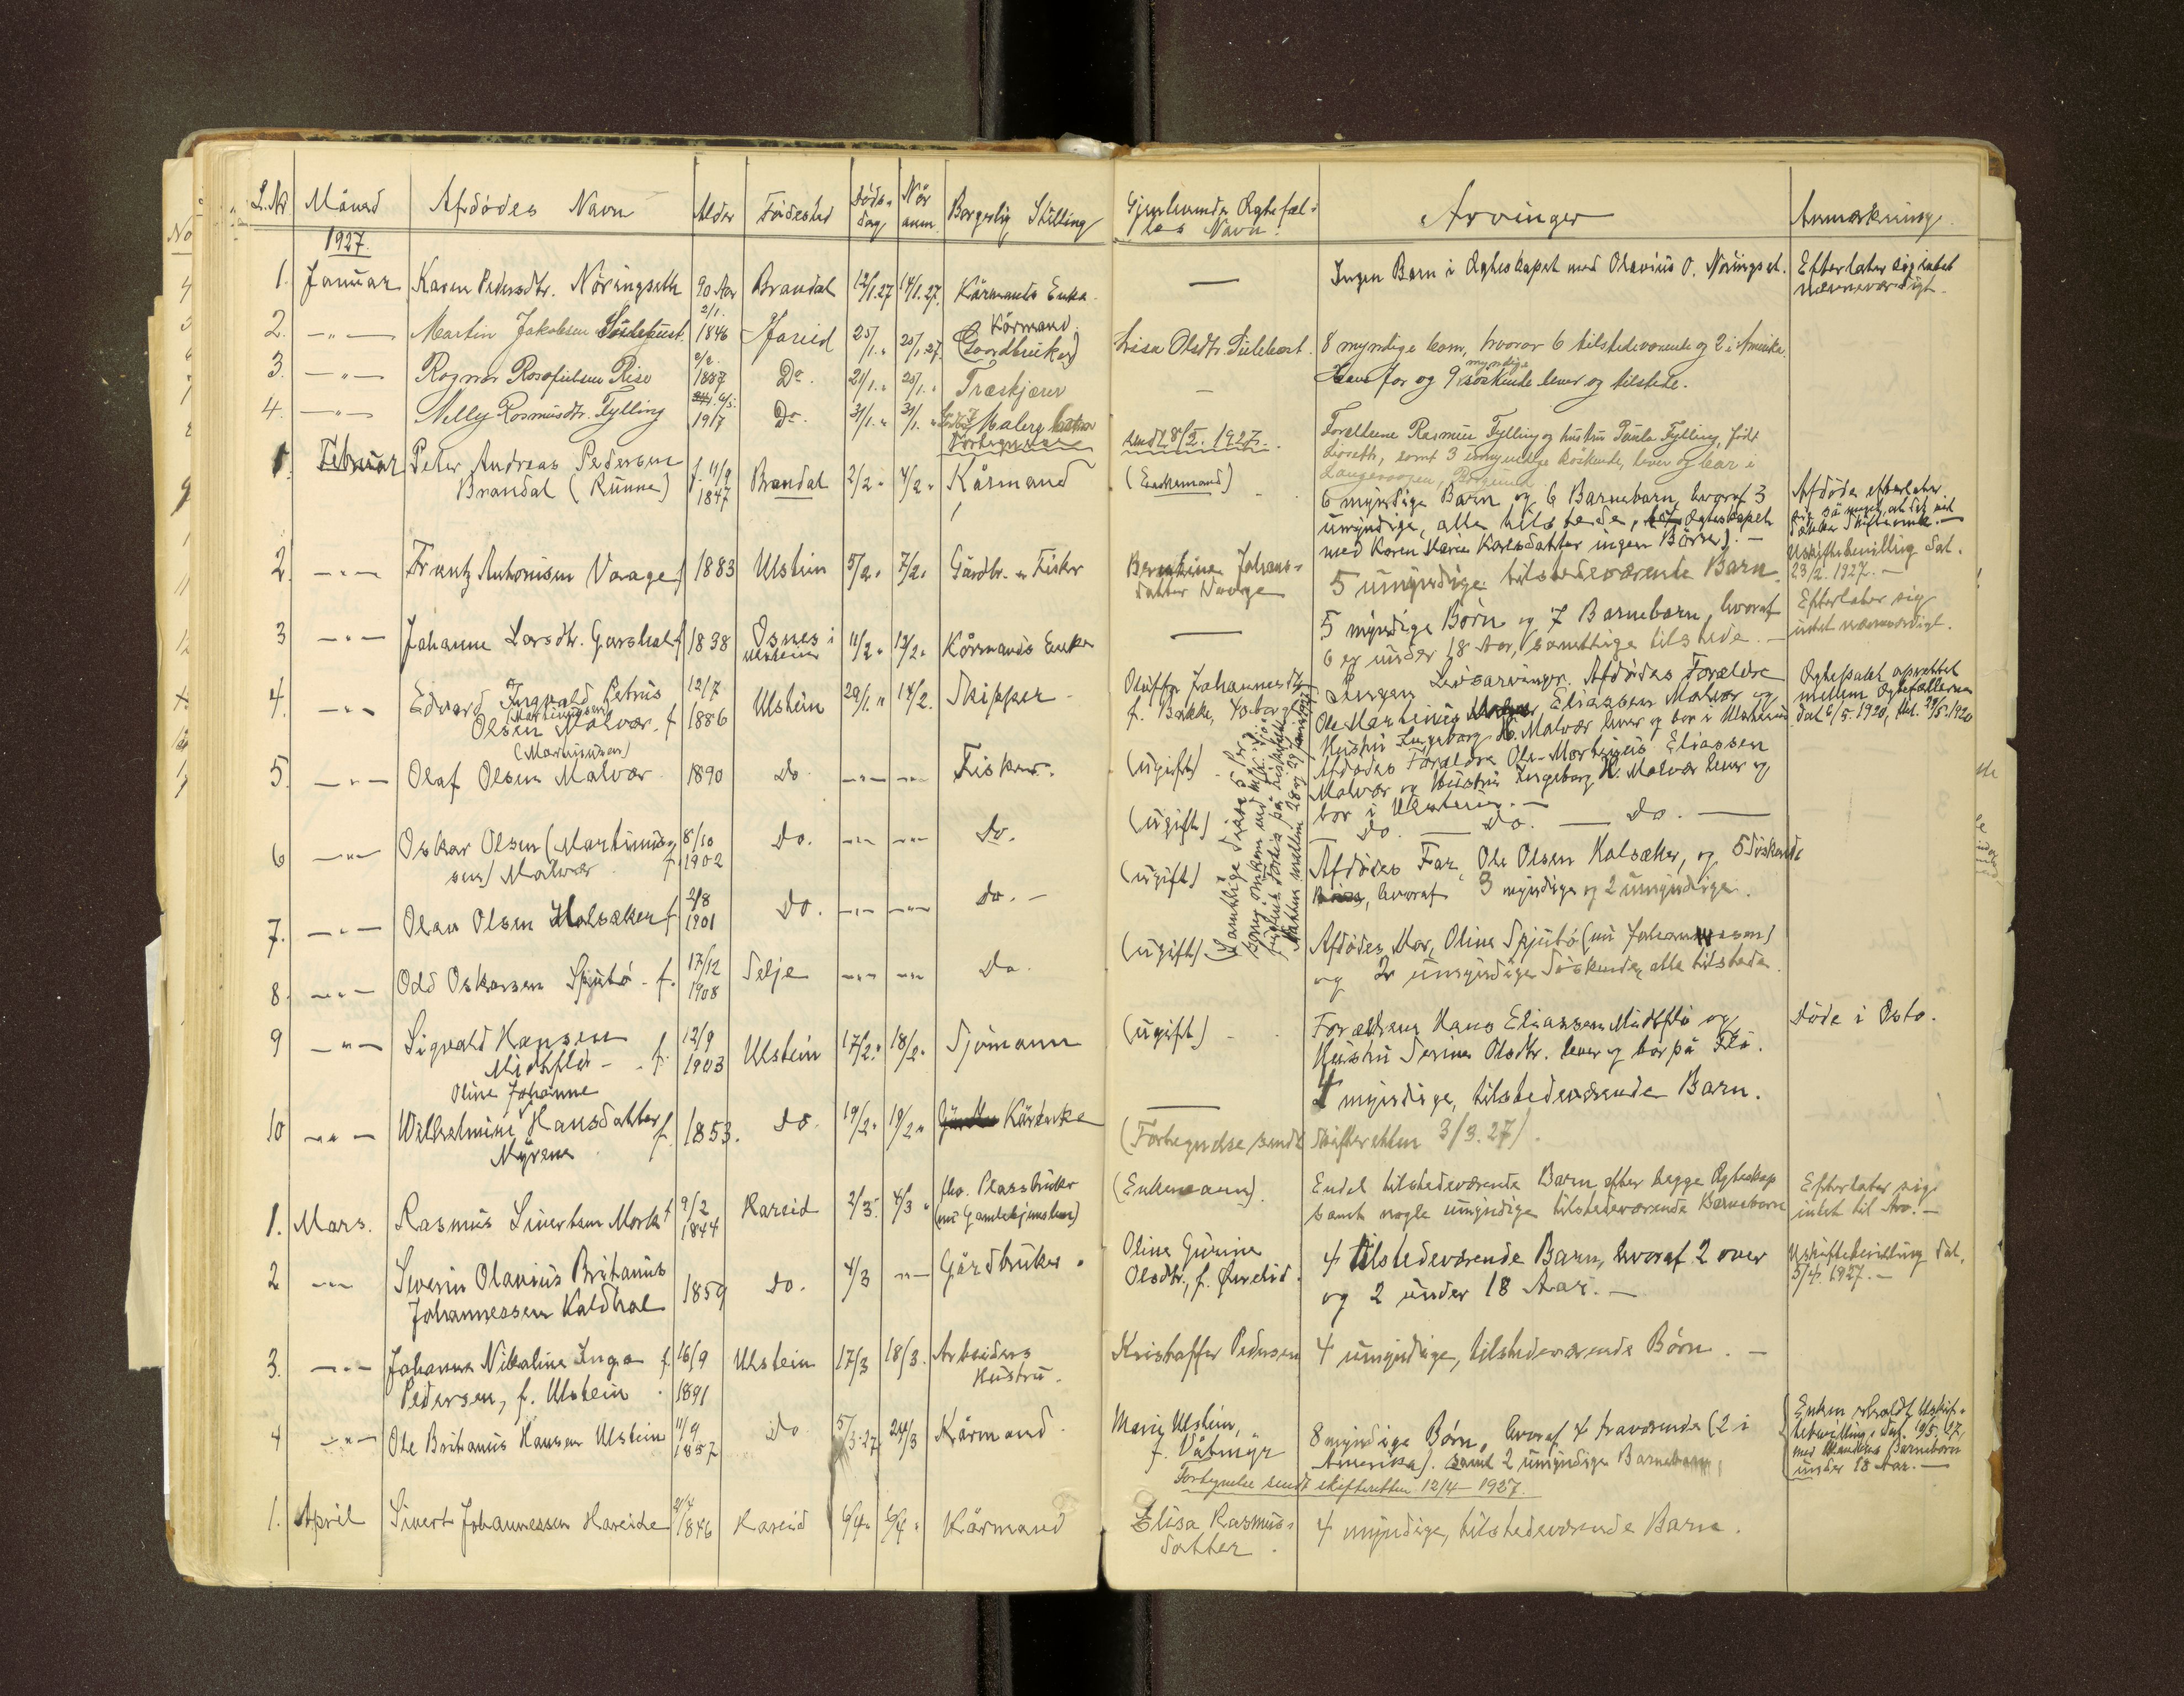 L.No Måned Afdødes Navn Alder Fødested Døds- dag Når anm. Borgerlig Stilling Gjenlevende Ægtefæl- les Navn. Arvinger Anmærkning.
1927.
1. Januar Karen Pedersdtr. Nöringseth 90 Aar Brandal 12/1.27 14/1.27. Kårmands Enke. — Ingen Barn i Ægteskapet med Olavius O. Nöringset. Efterlater sig intet
nævneværdigt.
2. —"— Martin Jakobsen 2/1. 1846 Hareid 25/1. " 25/1.27. Kårmand.
(Gaardbruker) Lisa Olsdtr. 8 myndige barn, hvorav 6 tilstedeværende og 2 i Amerika.
3. —"— Ragnar Riise 1887 Do. 21/1. " 25/1. " Træskjærer — Far og 9 myndige søskende lever og tilstede.
4. —"— Nelly Rasmusdtr. Fylling 1917 Do. 31/1. " 31/1. " Maler
Fortegnelse sendt 8/2. 1927. Forældrene Rasmus Fylling og hustru Paula Fylling, født
samt 3 umyndige søskende, lever og bor i
1. Februar Peter Andreas Pedersen
Brandal (Runne) f. 11/9 1847 Brandal 2/2 " 4/2 " Kårmand (Enkemand) 6 myndige Barn og 6 Barnebarn, hvoraf 3
umyndige, alle tilstede, Ægteskapet
med Karen Marie Karlsdatter ingen Börn). —
Afdöde efterlater
sig så meget, at det vil
2. —"— Frantz Antonisen Vaage f 1883 Ulstein 5/2. 7/2. Gårdbr. & Fisker Berntine Johans-
datter Vaage 5 umyndige tilstedeværende Barn. Uskiftebevilling dat.
23/2. 1927. —
3 —"— Johanne Larsdtr. Garshol f 1838 Osnes i
Ulstein 11/2. 12/2. Kårmands Enke — 5 myndige Börn og 7 Barnebarn, hvoraf
6 er under 18 Aar, samtlige tilstede. — Efterlater sig
intet nævneværdigt.
4. —"— Edvard Ingvald Petrus
(Martinusen)
Olsen Malvær. f 12/7 1886 Ulstein 29/1. " 14/2. Skipper Oluffa Johannesdtr.
f. Bakke, Ingen Livsarvinger. Afdödes Forældre
Ole Martinus Eliassen Malvær og
Hustru Ingeborg H. Malvær lever og bor i Ulstein Ægtepakt oprettet
mellem Ægtefællerne
dat 6/5. 1920,
5. —"— (Martinusen)
Olaf Olsen Malvær 1890 Do —"— —"— Fisker. (ugift) Afdödes Forældre Ole Martinus Eliassen
Malvær og Hustru Ingeborg H. Malvær lever og
bor i Ulstein. —
6 —"— Oskar Olsen (Martinus-
sen) Malvær f 8/10 1902 Do. —"— —"— Do. (ugift) Do. — Do. — Do. —
7. —"— Olav Olsen Holsæker f. 2/8 1901 Do. —"— —"— Do. — (ugift) Afdödes Far, Ole Olsen Kalsæker, og 5 Söskende
hvoraf 3 myndige og 2 umyndige.
8. —"— Odd Oskarsen Spjutö - f. 17/12 1908 Selje —"— —"— Do. (ugift) Afdödes Mor, Oline Spjutö (nu Johannessen)
og 2 umyndige Söskende, alle tilstede.
Samtlige disse 5 Per-
soner omkom ned
på
Natten mellem 28 og 29 januar 1927
9 —"— Sigvald Hansen
Midtflø - f. 12/9 1903 Ulstein 17/2. 18/2. Sjömann (ugift) Forældrene Hans Eliassen Midtflö og
Hustru Serine Olsdtr. lever og bor på Flö. Döde i Oslo.
10 —"— Oline Johanne
Wilhelmine Hansdatter
Myrene f. 1853. Do. 19/2. 19/2 " Kårenke — 4 myndige, tilstedeværende Barn.
(Fortegnelse sendt Skifteretten 3/3. 27).
1. Mars. Rasmus Sivertsen Mork f 9/2 1844 Hareid 2/3. 4/3 " fhv. Plassbruker
(nu Gamlehjemslem) (Enkemann). Endel tilstedeværende Barn efter begge Ægteskap
samt nogle umyndige tilstedeværende Barnebarn Efterlater sig
intet til Arv. —
2 —"— Severin Olavius Britanus
Johannessen Kaldhol 1859 Do. 4/3 —"— Gårdbruker. Oline Gurine
Olsdtr., f. Øvrelid. 4 tilstedeværende Barn, hvoraf 2 over
og 2 under 18 Aar. — Uskiftebevilling dat.
5/4. 1927. —
3. —"— Johanne Nikoline Inga f.
Pedersen, f. Ulstein. 16/9 1891 Ulstein 17/3 18/3. Arbeiders
Hustru. Kristoffer Pedersen 4 umyndige, tilstedeværende Börn. —
4 —"— Ole Britanus Hansen Ulstein 11/9 1857 Do 5/3.27 24/3 Kårmand Marie Ulstein,
f. Våtmyr 8 myndige Börn, hvoraf 4 fraværende (2 i
Amerika). samt 2 umyndige Barnebarn
(Enken erholdt Uskifte-
bevilling, dat. 19/5. 27,
med Mandens Barnebarn
under 18 Aar. —
Fortegnelse sendt skifteretten 12/4 - 1927.
1. April Sivert Johannessen Hareide 21/4 1846 Hareid 6/4. 6/4. Kårmand Elisa Rasmus-
datter. 4 myndige, tilstedeværende Barn.